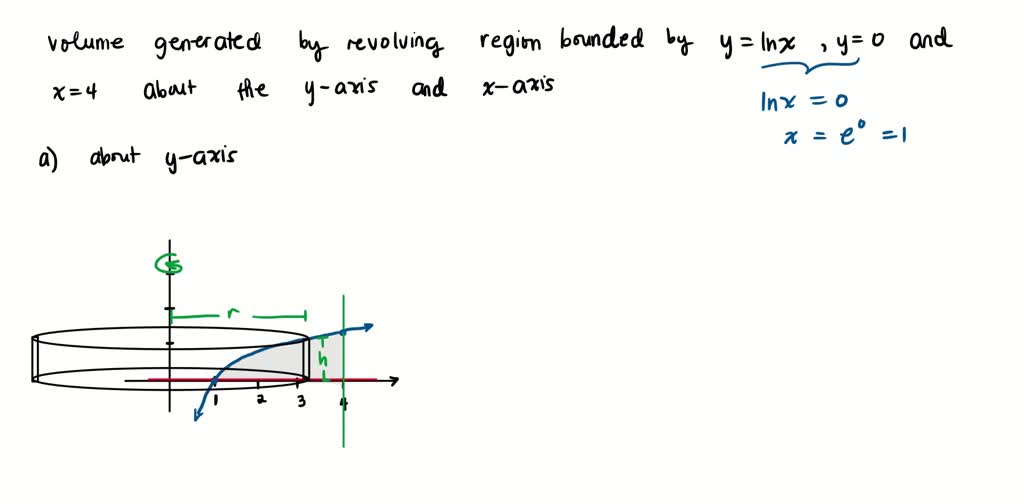 volume generated by revolving region bounded by y = lnx , y = 0 and
x = 4 about the y-axis and x-axis
lnx = 0
x = e⁰ = 1
a) about y-axis
r
h
1 2 3 4